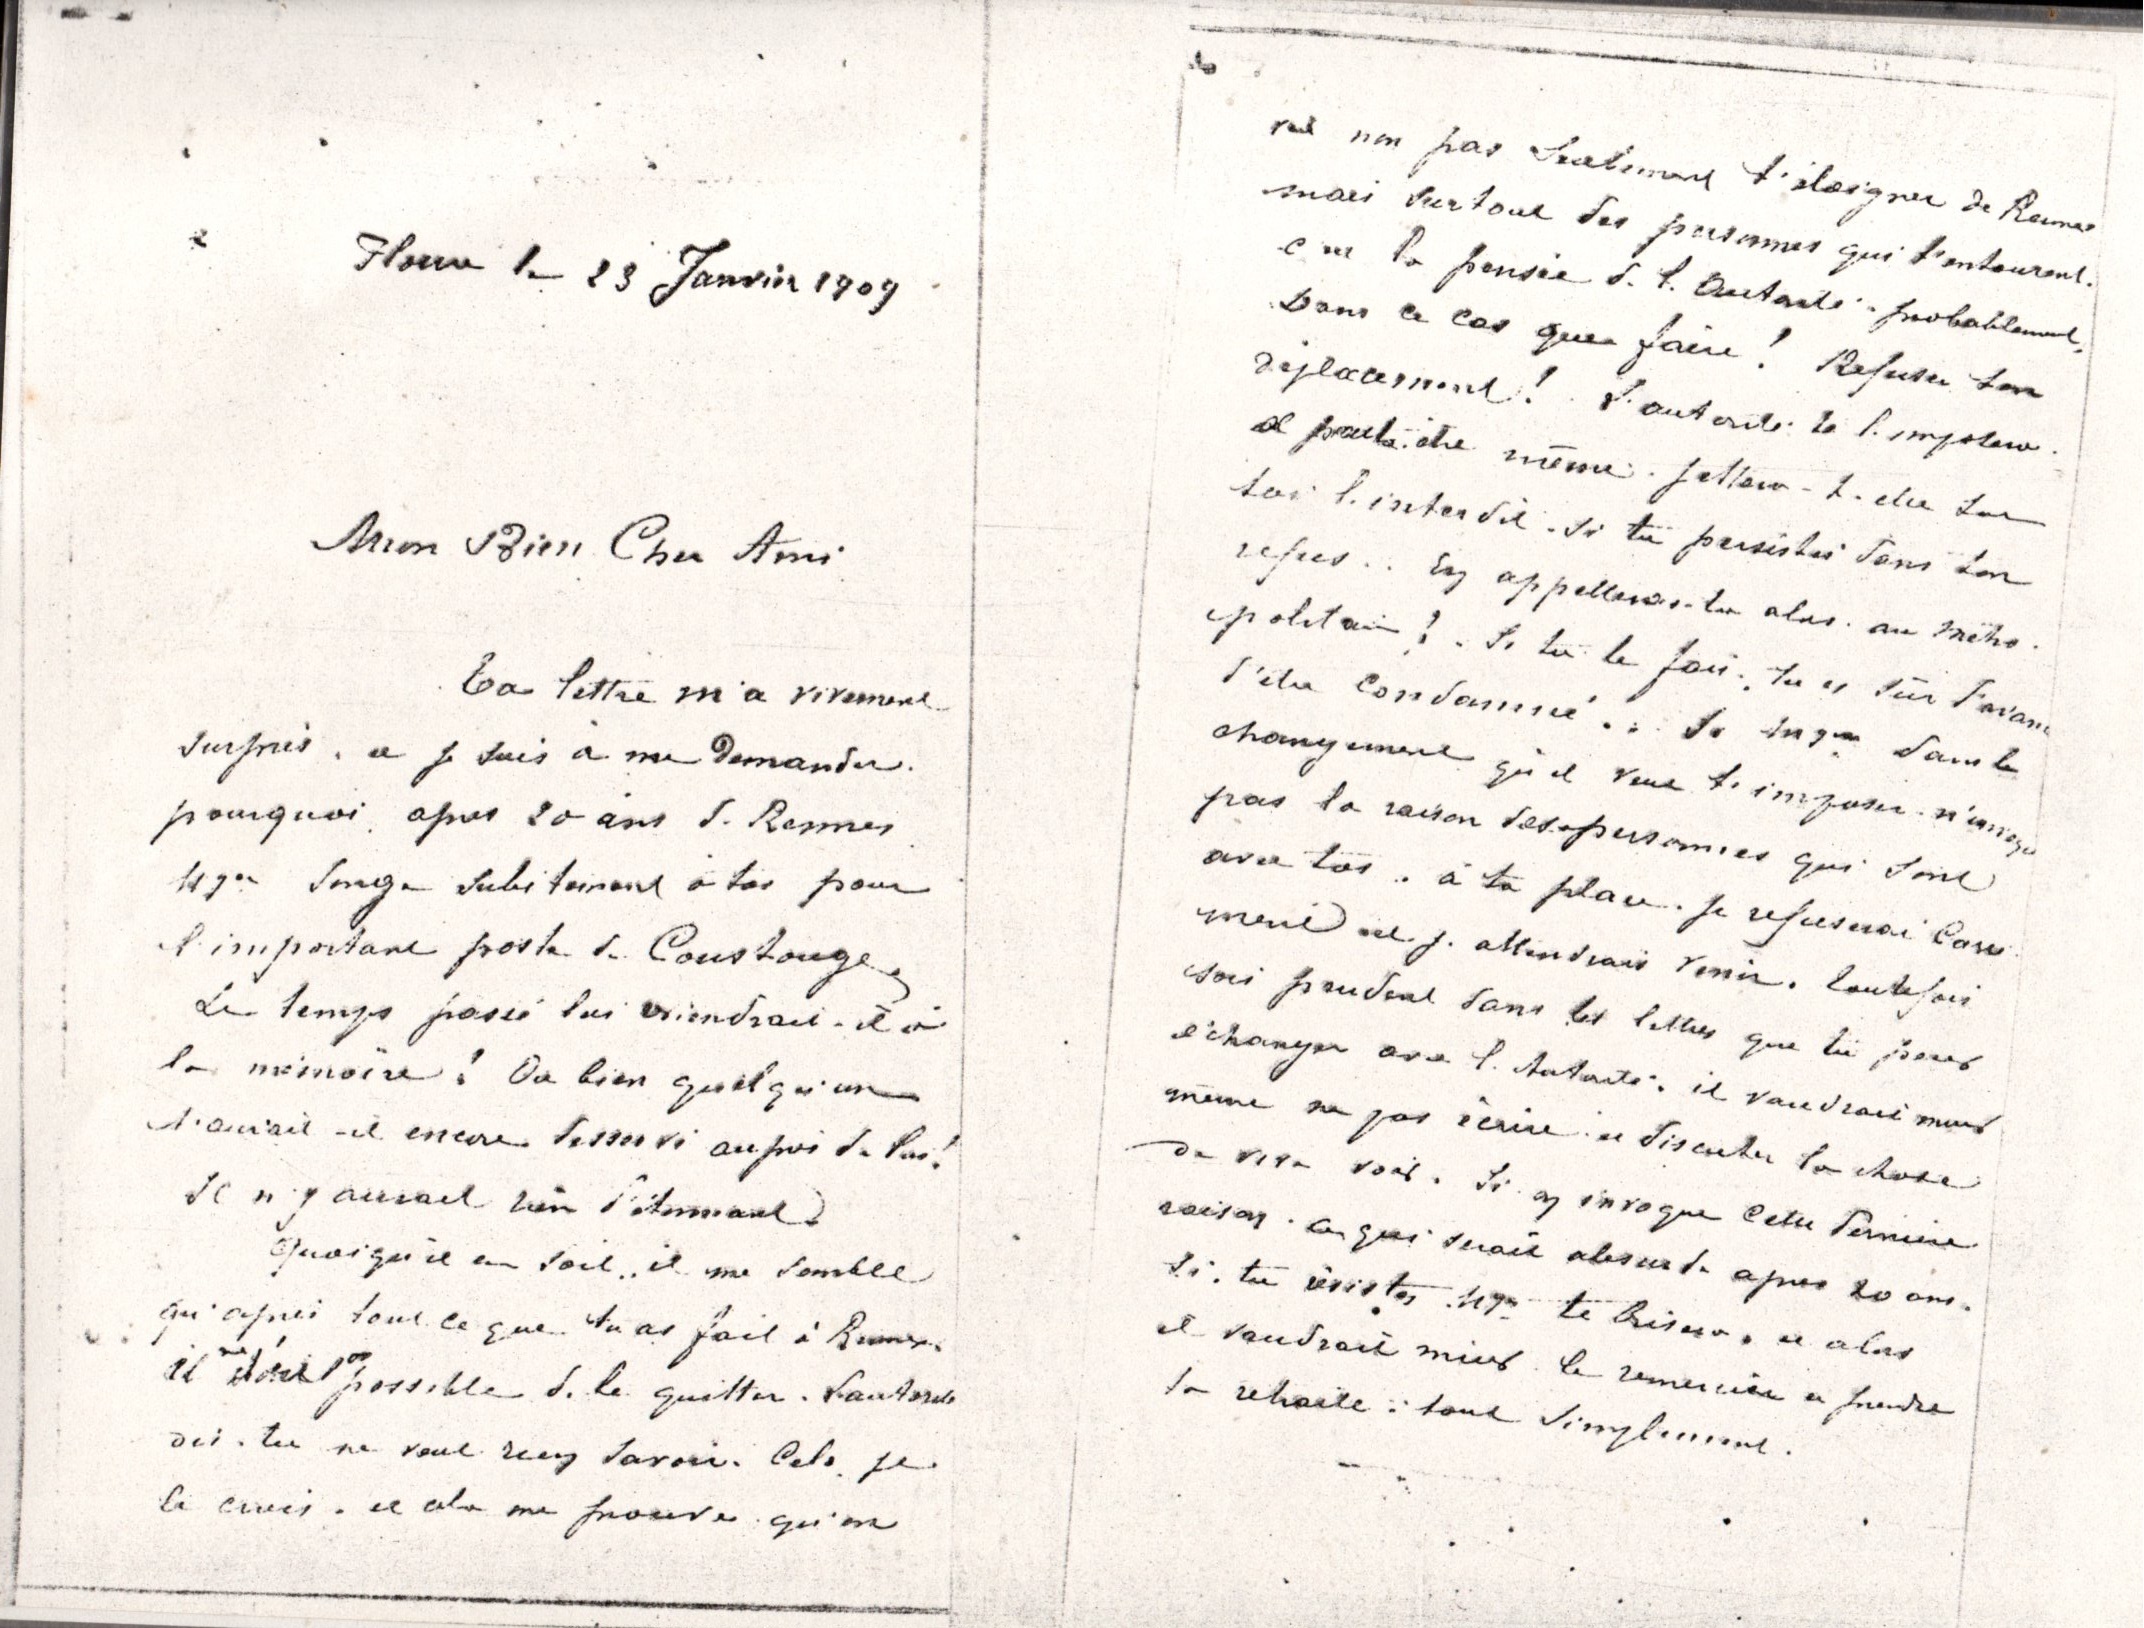 Floure le 23 Janvier 1909
Mon Bien Cher Ami
Ta lettre m'a vivement
surpris. et je suis à me Demander.
pourquoi après 20 ans de Rennes
Mgr Songe Subitement à toi pour
l'important poste de Coustouge,
Le temps passé lui viendrait-il à
la mémoire! Ou bien quelqu'un
t'aurait-il encore desservi auprès de lui!
Il n'y aurait rien d'étonnant.
Quoiqu'il en soit, il me semble
qu'après tout ce que tu as fait à Rennes.
Il possible de le quitter. L'autorité
dis-tu ne veut rien savoir. Cela je
le crois. et cela me prouve qu'on
veut non pas Seulement t'éloigner de Rennes
mais Surtout des personnes qui t'entourent.
c'est la pensée de l'Autorité. probablement,
Dans ce cas que faire! Refuser ton
déplacement! L'autorité te l'imposera.
et peut-être même. jettera-t-elle sur
toi l'interdit. Si tu persistes dans ton
refus.. En appelleras-tu alors. au métro-
politain! Si tu le fais. tu es sûr d'avance
d'être Condamné.. Si Mgr dans le
changement qu'il veut t'imposer n'invoque
pas la raison des personnes qui sont
avec toi. à ta place. je refuserai Carré-
ment et j'attendrais venir. toutefois
sois prudent dans les lettres que tu peux
échanger avec l'Autorité. il vaudrait mieux
même ne pas écrire. et discuter la chose
de vive voix. Si on invoque cette dernière
raison. ce qui serait absurde après 20 ans.
Si. tu résistes Mgr te brisera. et alors
il vaudrait mieux le remercier et prendre
ta retraite: tout Simplement.